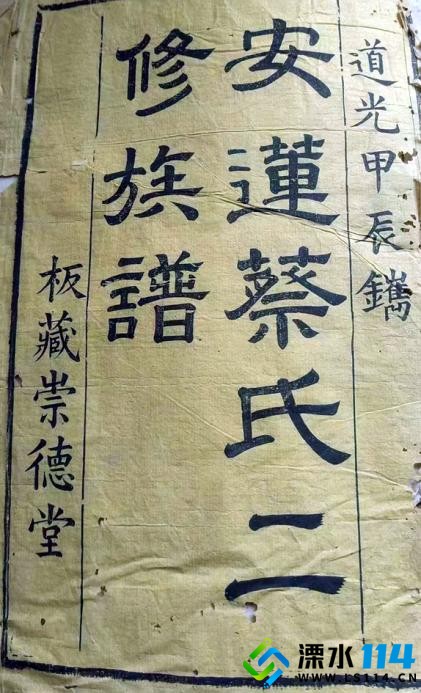 道光甲辰鐫
安蓮蔡氏二
修族譜
板藏崇德堂
溧水114
WWW.LS114.CN